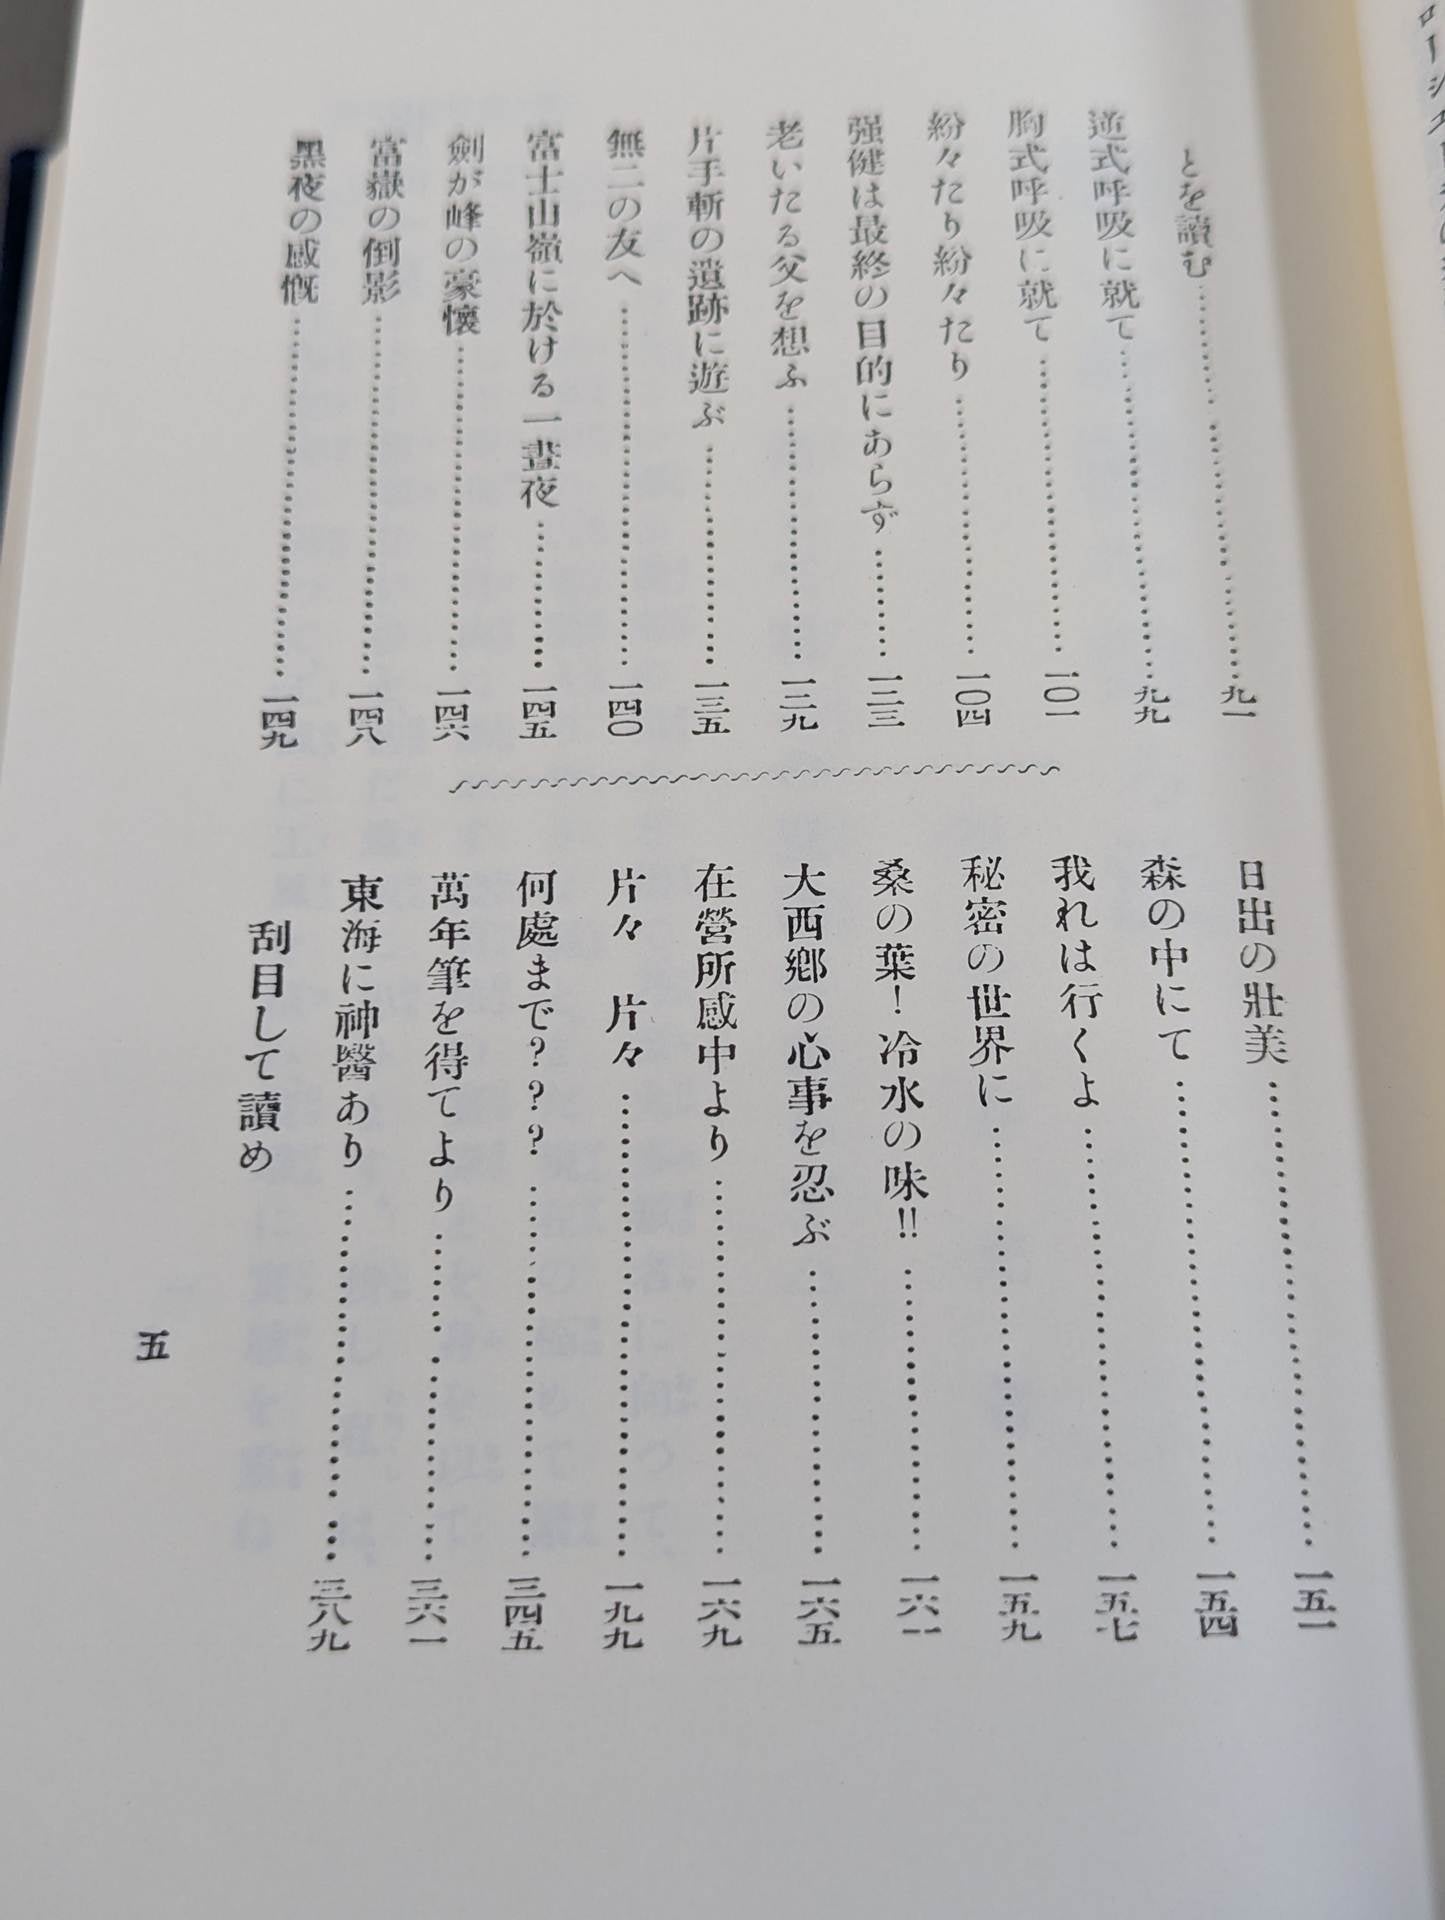 とを讀む……………………九一
逆式呼吸に就て……………………九九
胸式呼吸に就て……………………一〇一
紛々たり紛々たり……………………一〇四
强健は最終の目的にあらず…………一二三
老いたる父を想ふ……………………一二九
片手斬の遺跡に遊ぶ…………………一三五
無二の友へ……………………………一四〇
富士山嶺に於ける一晝夜……………一四五
劍が峰の豪懷…………………………一四六
富嶽の倒影……………………………一四八
黑夜の感慨……………………………一四九
日出の壯美……………………………一五一
森の中にて……………………………一五四
我れは行くよ…………………………一五七
秘密の世界に…………………………一五九
桑の葉!冷水の味!!…………………一六一
大西鄕の心事を忍ぶ…………………一六五
在營所感中より………………………一六九
片々 片々……………………………一九九
何處まで???………………………三四五
萬年筆を得てより……………………三六一
東海に神醫あり………………………三八九
刮目して讀め
五